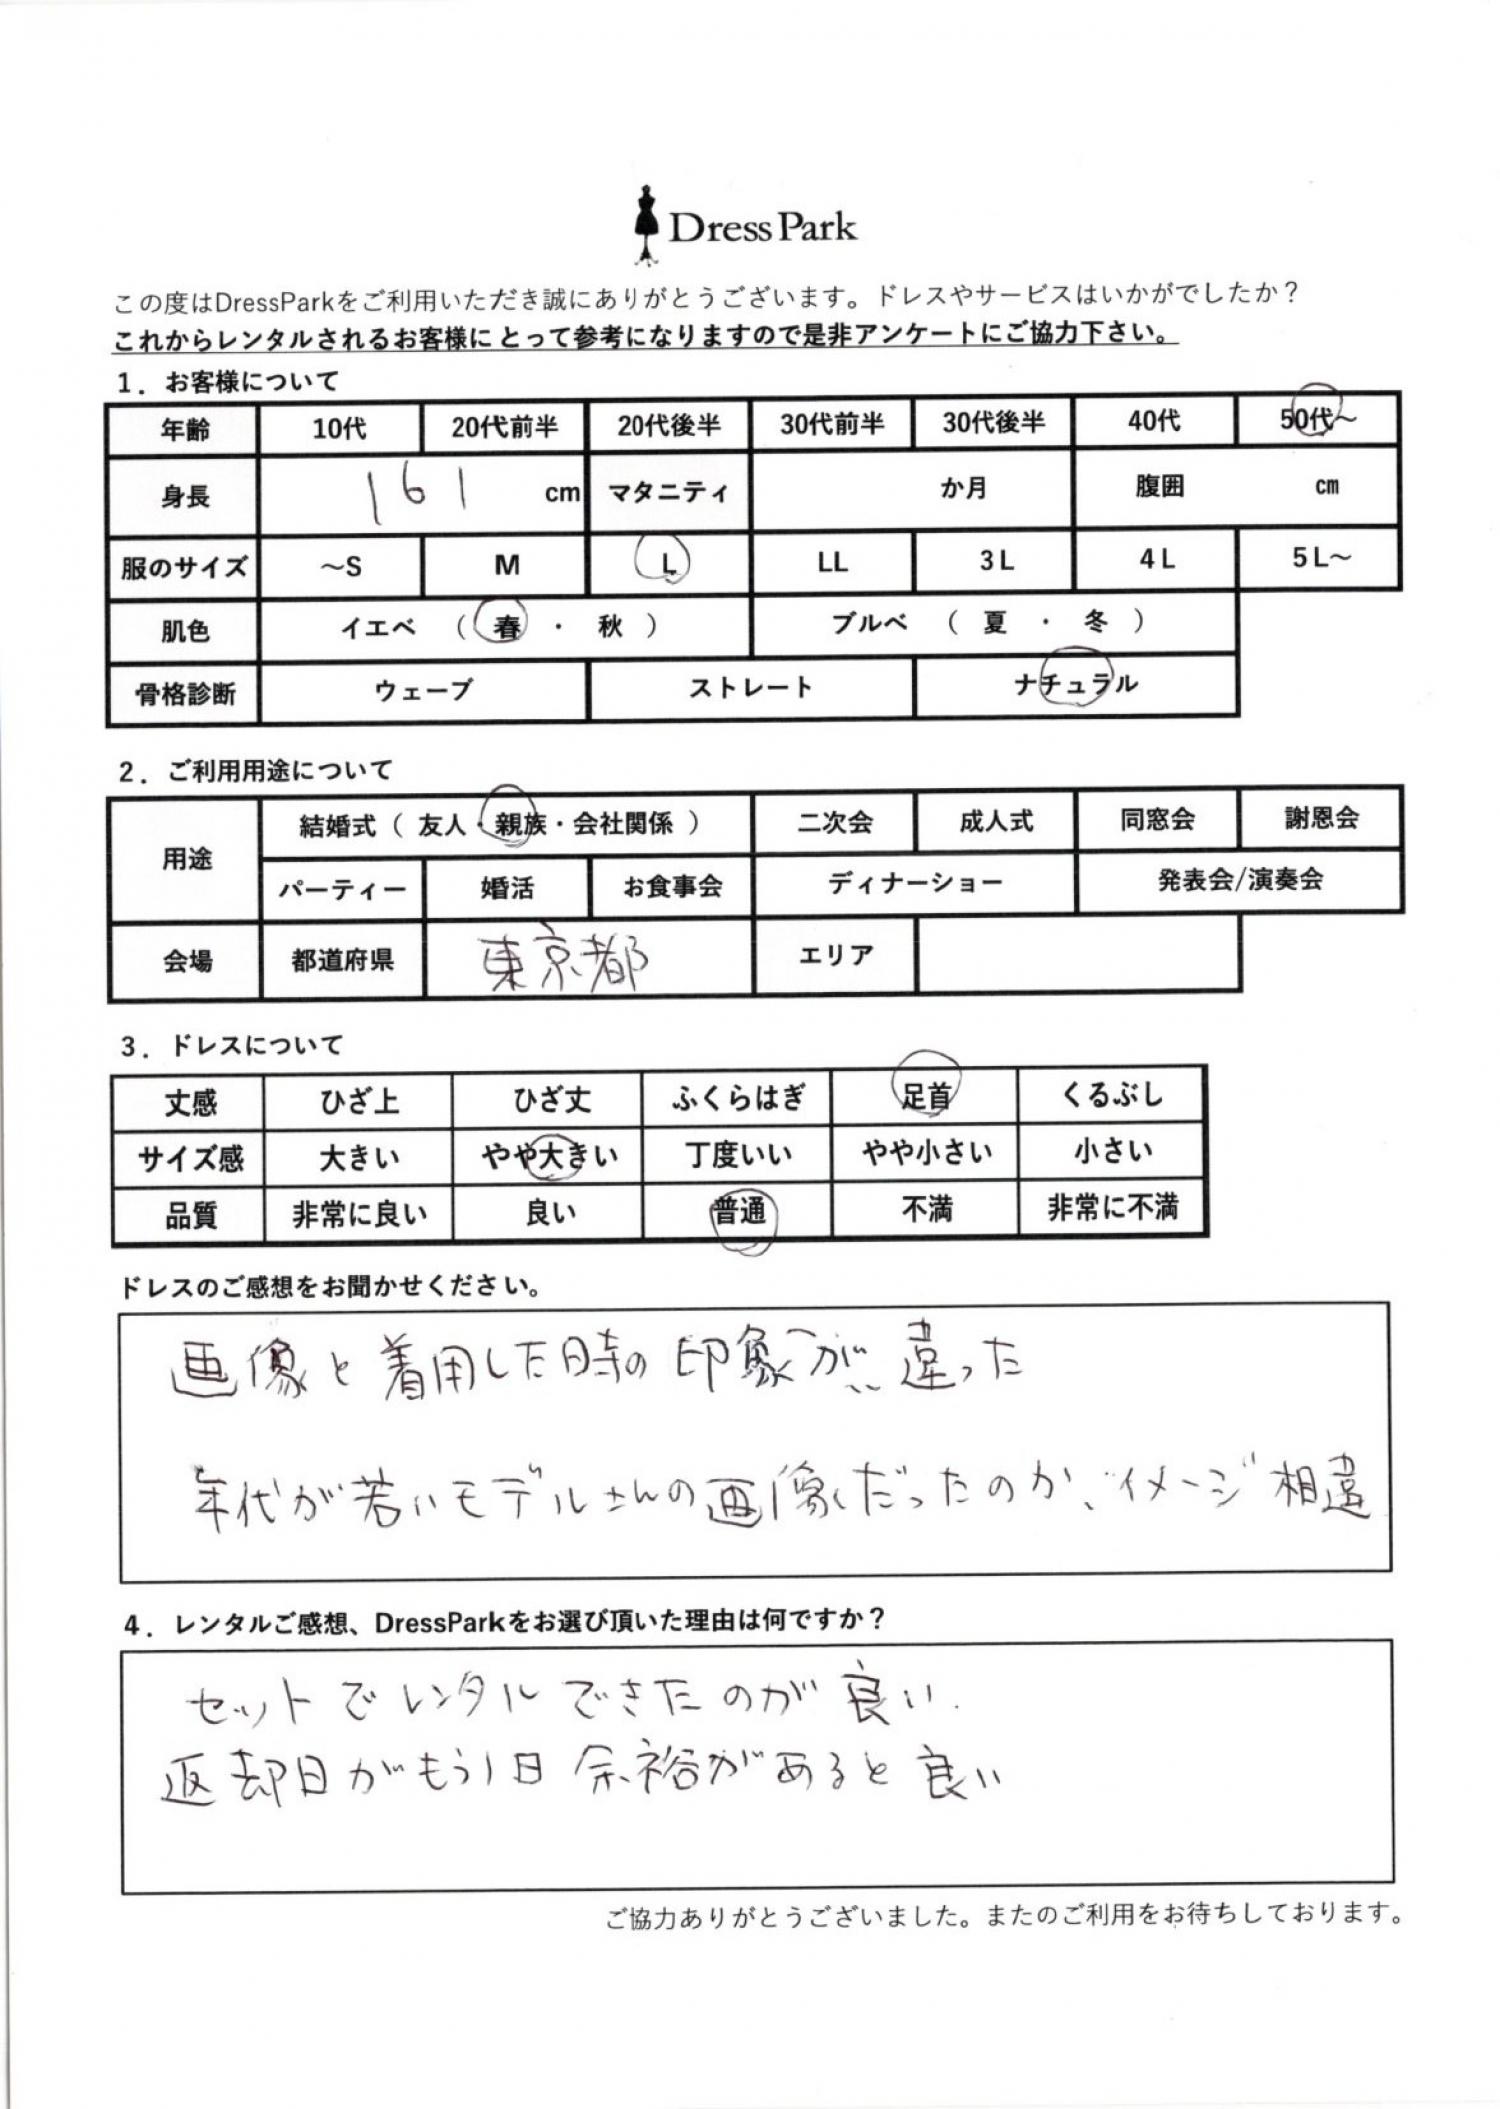 DressPark
この度はDressParkをご利用いただき誠にありがとうございます。ドレスやサービスはいかがでしたか？
これからレンタルされるお客様にとって参考になりますので是非アンケートにご協力下さい。
1．お客様について
年齢 10代 20代前半 20代後半 30代前半 30代後半 40代 50代～
身長 161 cm マタニティ か月 腹囲 cm
服のサイズ ～S M L LL 3L 4L 5L～
肌色 イエベ （ 春 ・ 秋 ） ブルベ （ 夏 ・ 冬 ）
骨格診断 ウェーブ ストレート ナチュラル
2．ご利用用途について
用途 結婚式（ 友人・親族・会社関係 ） 二次会 成人式 同窓会 謝恩会
パーティー 婚活 お食事会 ディナーショー 発表会/演奏会
会場 都道府県 東京都 エリア
3．ドレスについて
丈感 ひざ上 ひざ丈 ふくらはぎ 足首 くるぶし
サイズ感 大きい やや大きい 丁度いい やや小さい 小さい
品質 非常に良い 良い 普通 不満 非常に不満
ドレスのご感想をお聞かせください。
画像と着用した時の印象が違った
年代が若いモデルさんの画像だったのか、イメージ相違
4．レンタルご感想、DressParkをお選び頂いた理由は何ですか？
セットでレンタルできたのが良い.
返却日がもう1日余裕があると良い
ご協力ありがとうございました。またのご利用をお待ちしております。